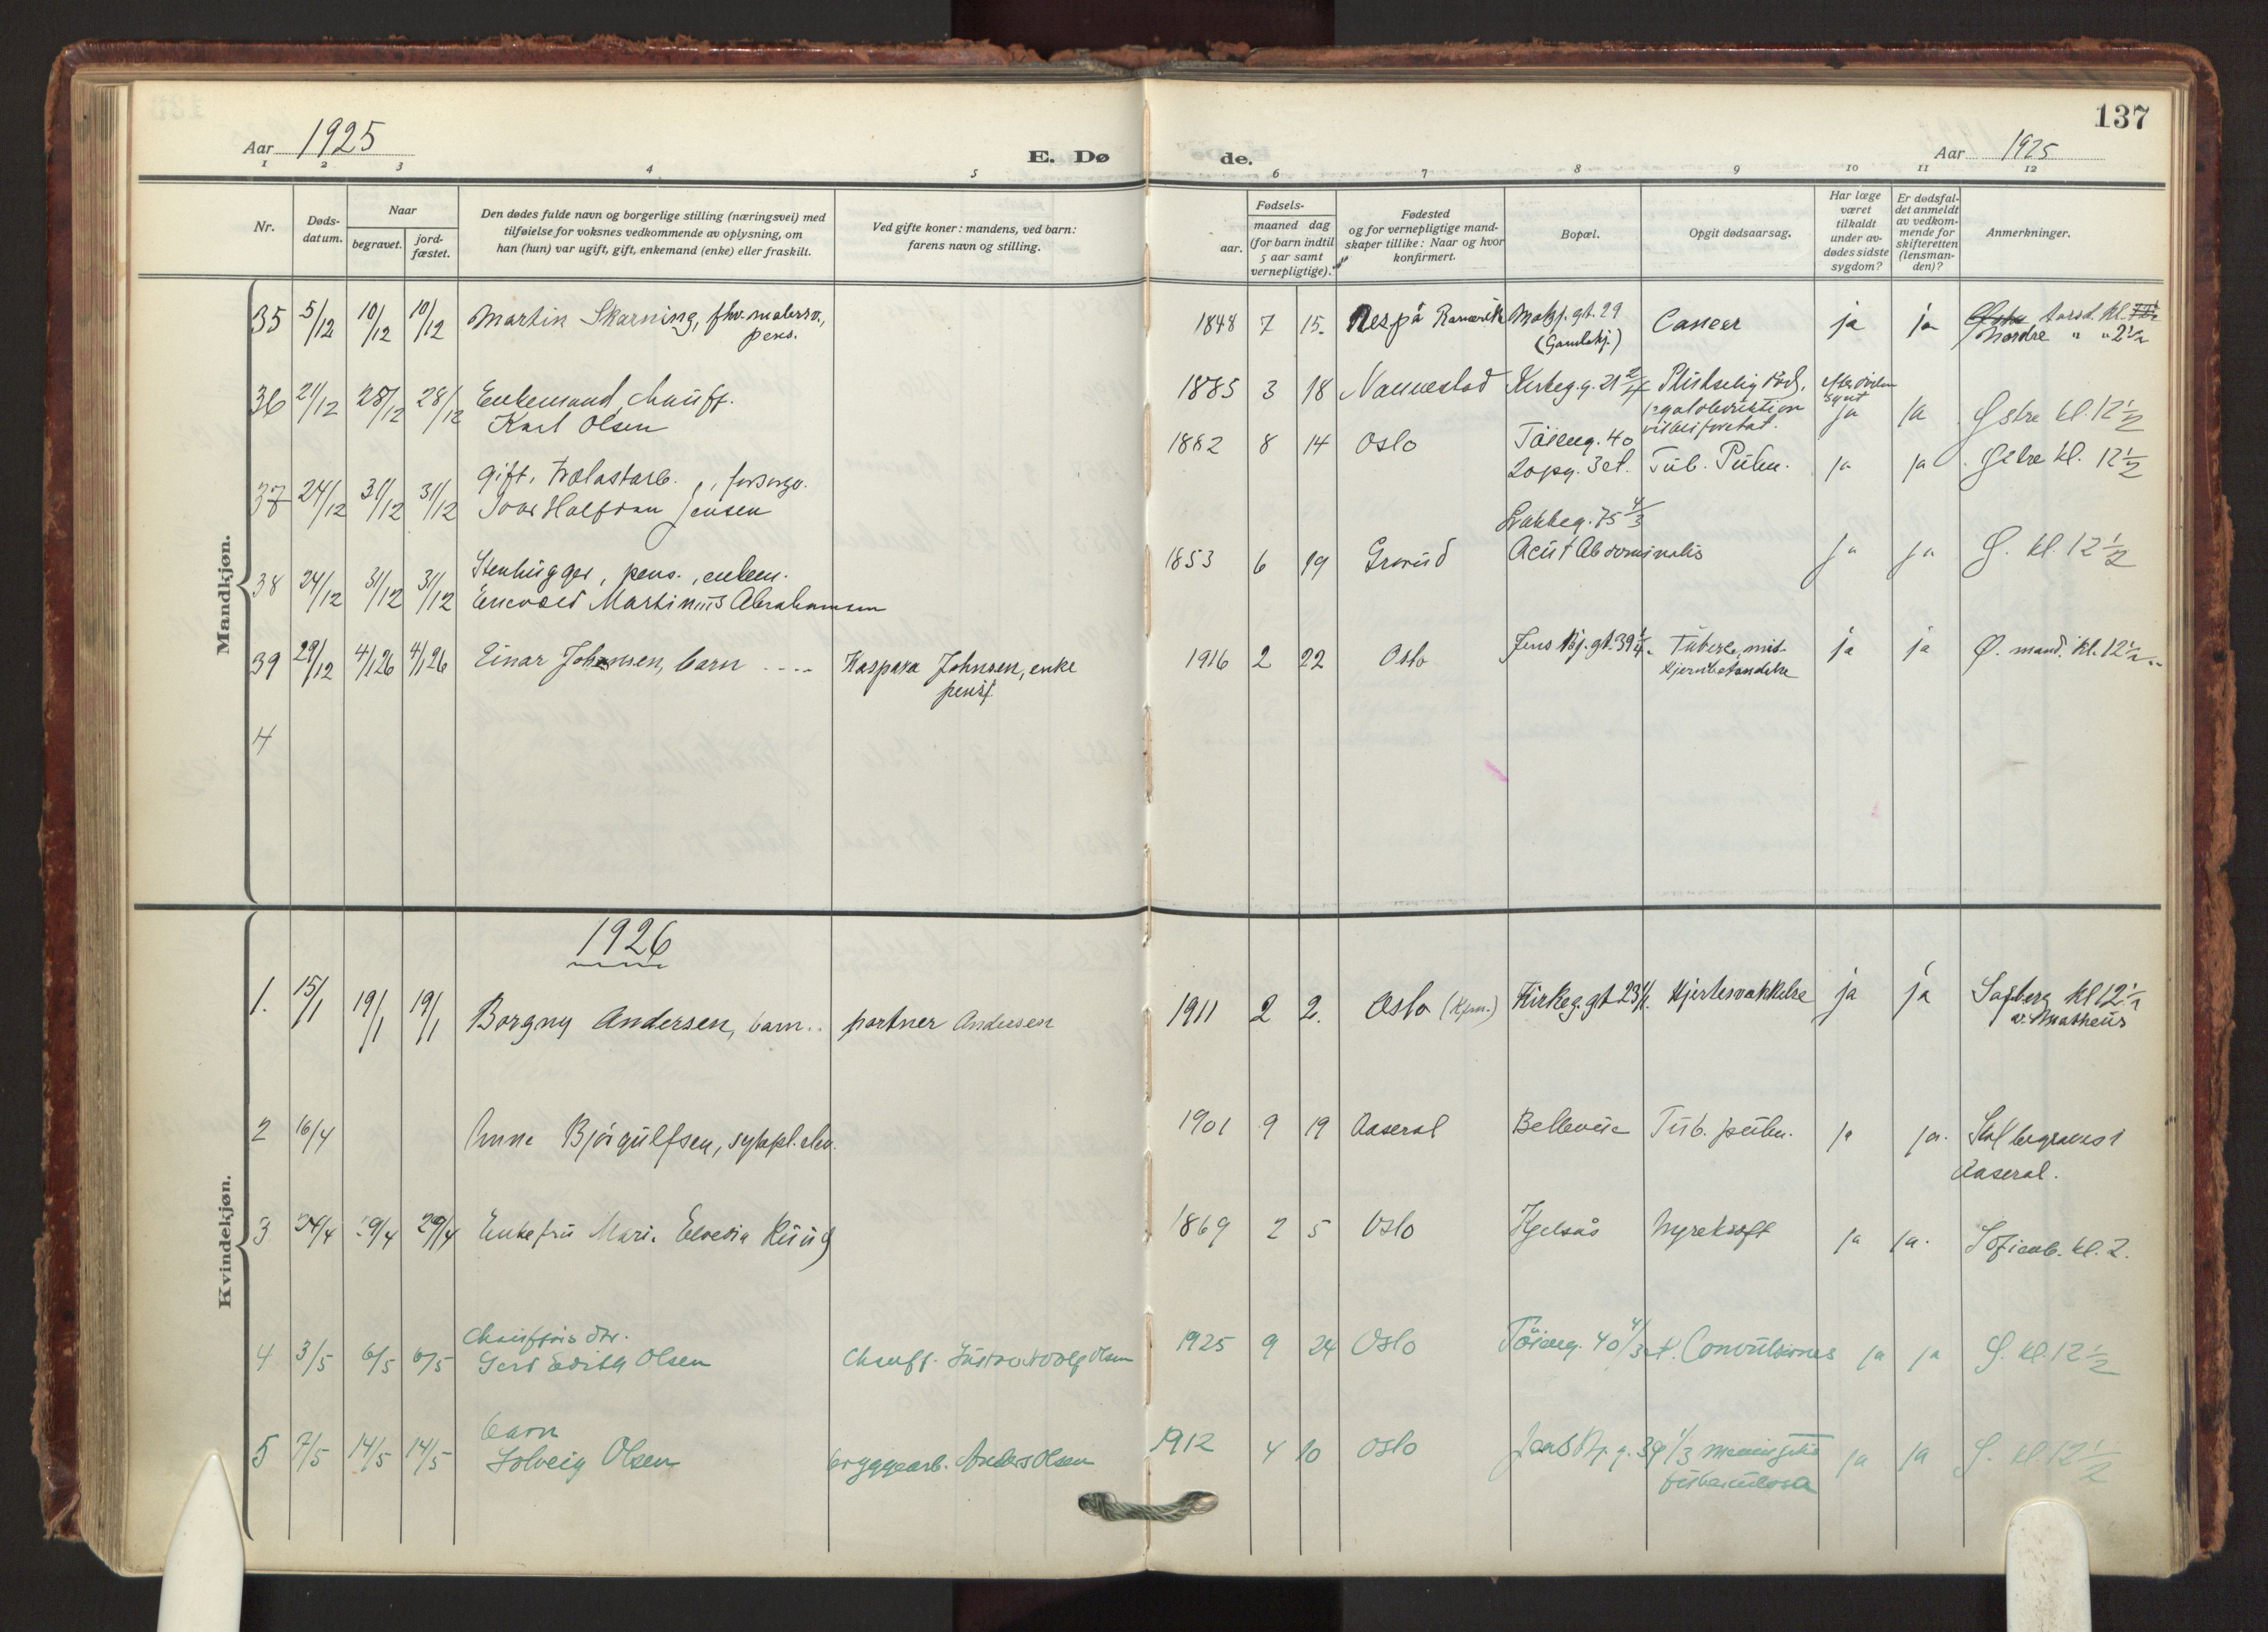 137
Aar 1925
E. Dø
de.
Aar 1925
1 2 3 4 5 6 7 8 9 10 11 12
Nr.
Døds-
datum.
Naar
begravet.
jord-
fæstet.
Den dødes fulde navn og borgerlige stilling (næringsvei) med
tilføielse for voksnes vedkommende av oplysning, om
han (hun) var ugift, gift, enkemand (enke) eller fraskilt.
Ved gifte koner: mandens, ved barn:
farens navn og stilling.
Fødsels-
aar.
maaned dag
(for barn indtil
5 aar samt
vernepligtige).
Fødested
og for vernepligtige mand-
skaper tillike: Naar og hvor
konfirmert.
Bopæl.
Opgit dødsaarsag.
Har læge
været
tilkaldt
under av-
dødes sidste
sygdom?
Er dødsfal-
det anmeldt
av vedkom-
mende for
skifteretten
(lensman-
den)?
Anmerkninger.
Mandkjøn.
35 5/12 10/12 10/12 Martin Skarning, fhv. malersv.,
pens.
1848 7 15. Nes på Romerike gt. 29
(Gamlebj.)
Cancer ja ja
Nordre " " 2 1/2
36 21/12 28/12 28/12 Enkemand, chauff.
Karl Olsen
1885 3 18 Nannestad Kirkeg. g. 21 2/4 Plutselig død,
ja ja Østre kl. 12 1/2
37 24/12 31/12 31/12 gift,
Jensen
1882 8 14 Oslo Töieng. 40
3 et. Tub. Pulm. ja ja Østre kl. 12 1/2
38 24/12 31/12 31/12 Stenhugger, pens., enkem.
Enevold Martinius Abrahamsen
1853 6 19 Grorud Lakkeg. 75 4/3
Acut Abdominalis ja ja Ø. kl. 12 1/2
39 29/12 4/1 26 4/1 26 Einar Johnsen, barn .... Kaspara Johnsen, enke
pensj.
1916 2 22 Oslo Jens Bj. gt. 39 1/4. Tuberkl.
hjernebetendelse
ja ja Ø. mand. kl. 12 1/2
4
Kvindekjøn.
1926
1. 15/1 19/1 19/1 Borgny Andersen, barn.. portner Andersen
1911 2 2. Oslo Kirkeg. gt 23 Hjertesvækkelse ja ja kl 12 1/2
av. Matheus
2 16/4 Anne Bjørgulfsen, sykepl. elev.
1901 9 19 Aaseral Bellevue Tub. pulm. ja ja. Skal begraves i
Aaseral.
3 24/4 29/4 29/4 Enkefru Marie Ruud
1869 2 5 Oslo Kjelsås Nyrekreft ja ja. Sofienb. kl. 2.
4 3/5 6/5 6/5 Chaufførs dtr.
Gerd Edith Olsen Chauff. Olsen
1925 9 24 Oslo Töieng. 40 4/3 et. Convulsiones ja ja Ø. kl. 12 1/2
5 7/5 14/5 14/5 barn
Solveig Olsen bryggearb. Anders Olsen
1912 4 10 Oslo Jens Bj. g. 39 1/3 meningitis
tuberculosa
ja ja Ø. kl 12 1/2